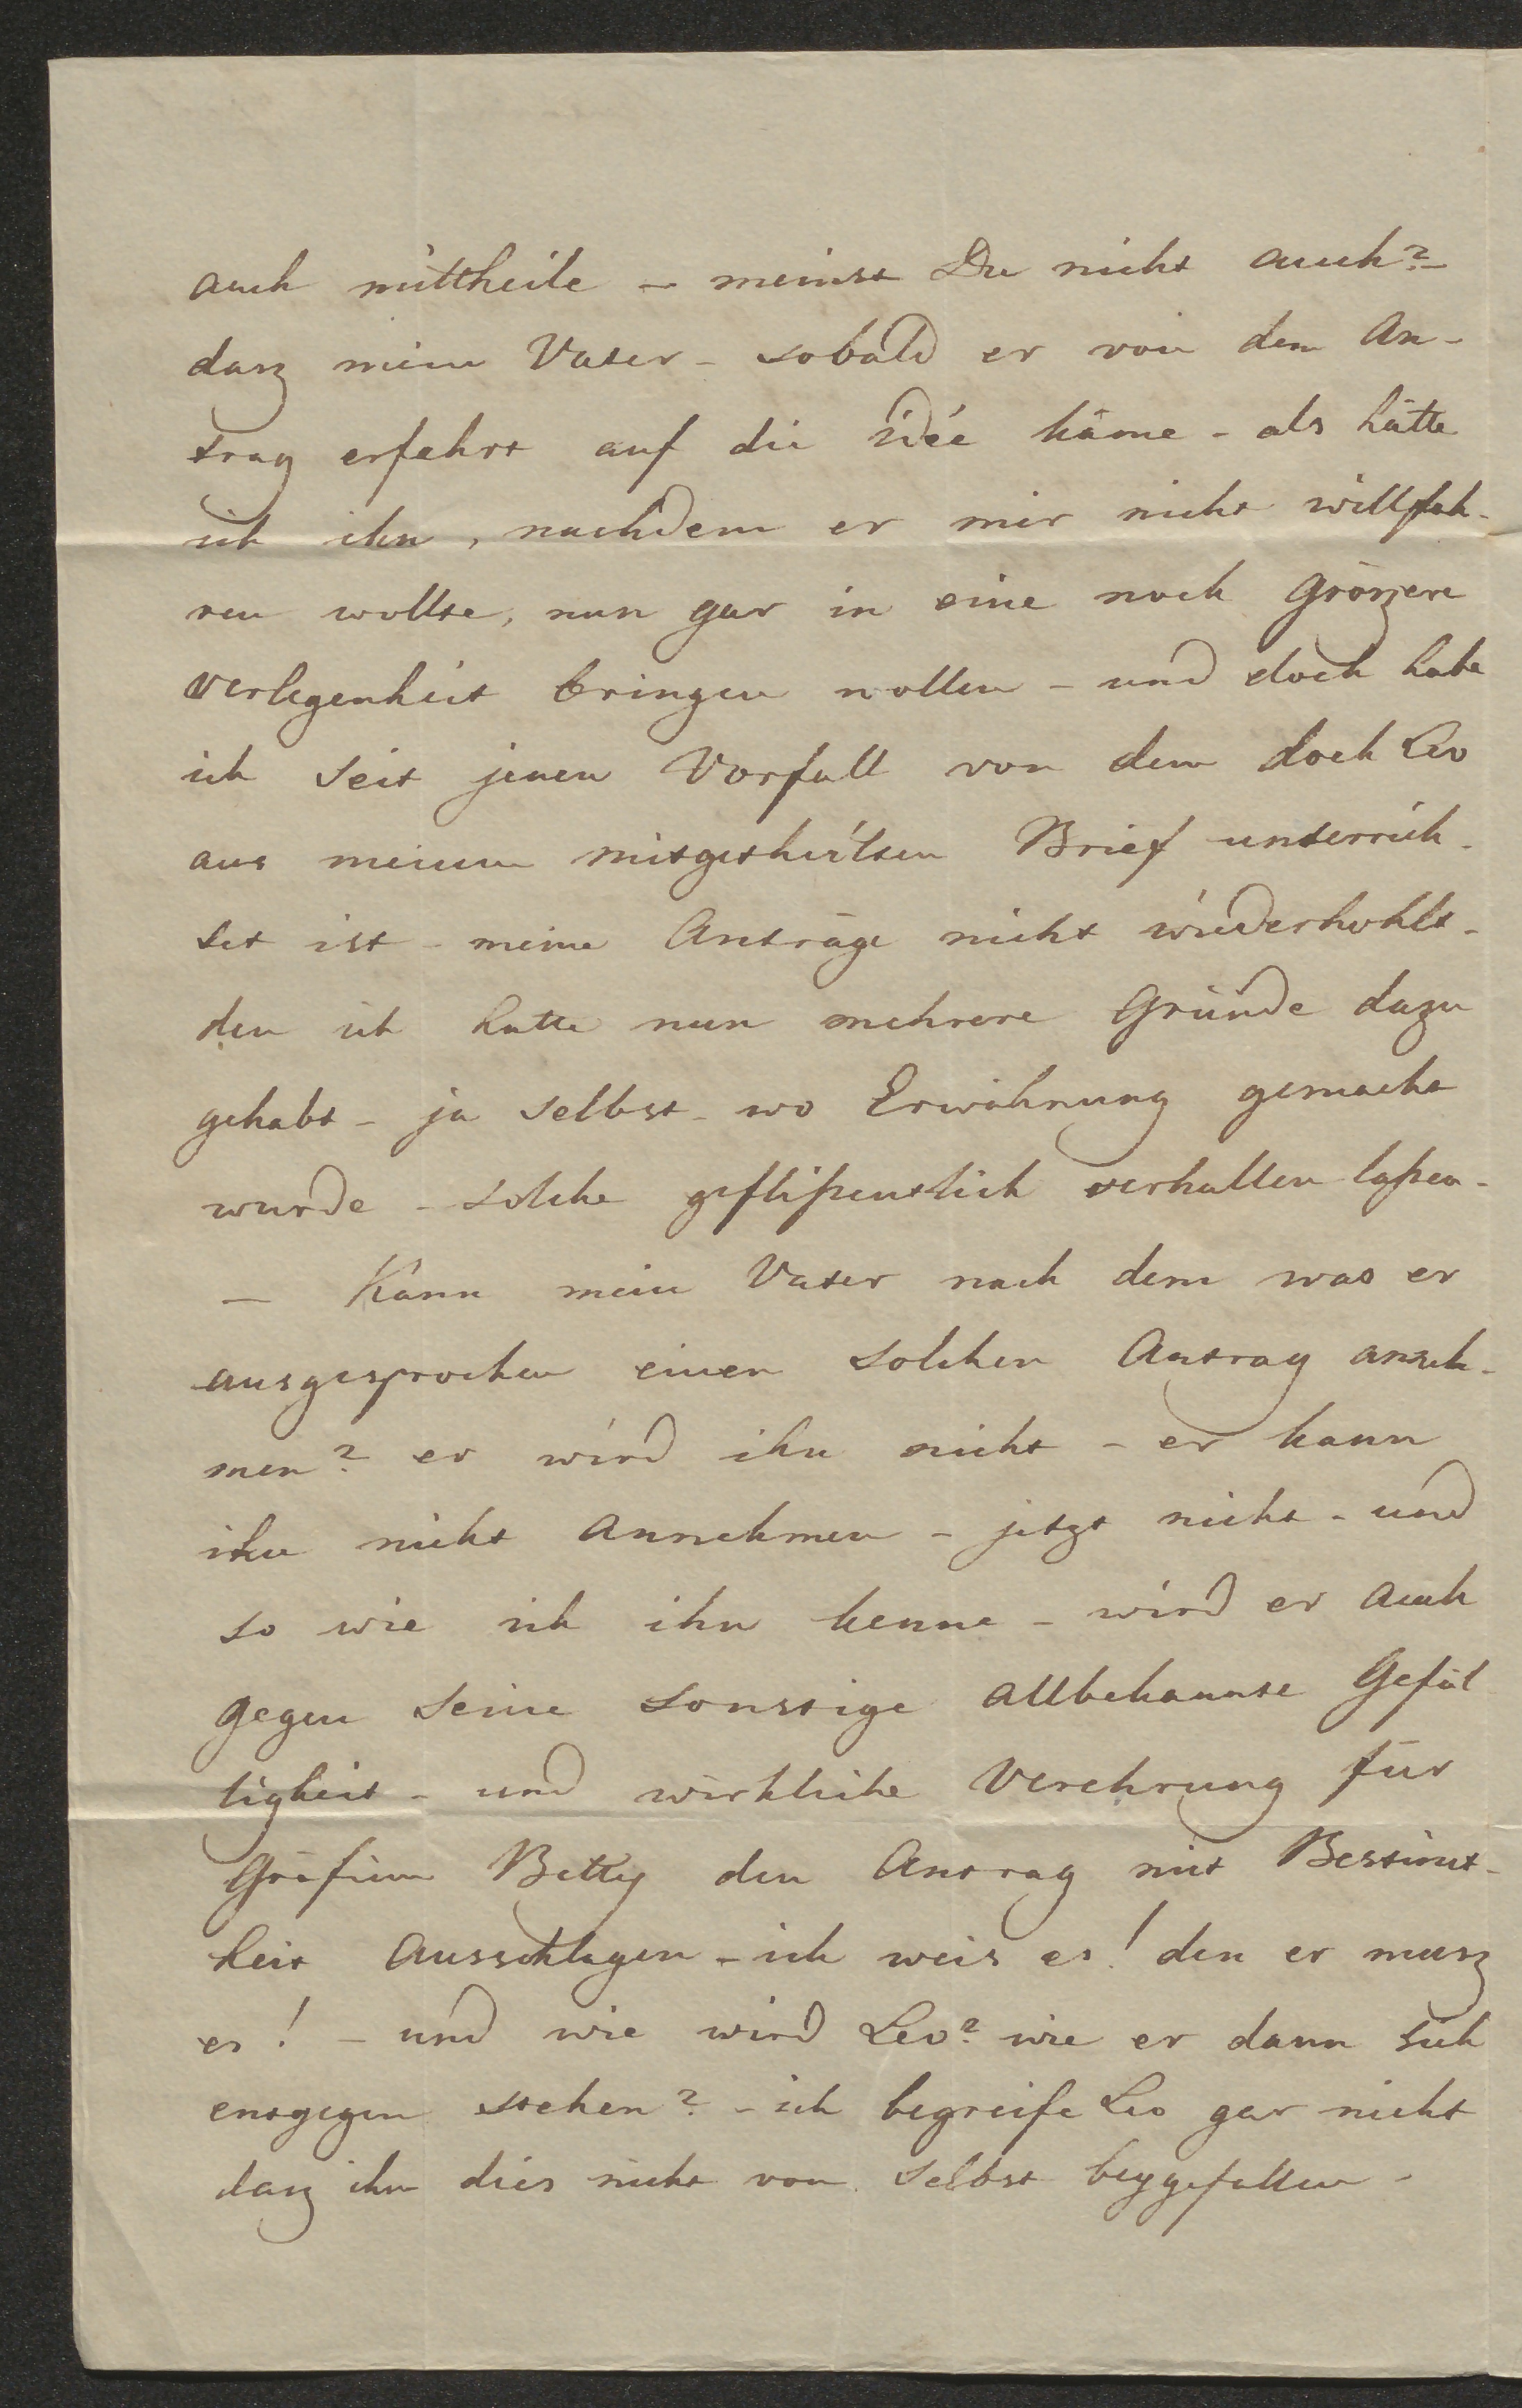 auch mittheile – meinst Du nicht auch? –
dasz mein Vater – sobald er von dem An-
trag erfehrt auf die idée käme – als hätte
ich ihn, nachdem er mir nicht willfah-
ren wollte, nun gar in eine noch gröszere
Verlegenheit bringen wollen – und doch habe
ich seit jenen Vorfall von dem doch Leo
aus meinem mitgetheilten Brief unterrich-
tet ist – meine Anträge nicht wiederhohlt –
den ich hatte nun mehrere Gründe dazu
gehabt – ja selbst – wo Erwähnung gemacht
wurde – solche geflißentlich verhallen laßen –
– Kann mein Vater nach dem was er
ausgesprochen einen solchen Antrag anneh-
men? er wird ihn nicht – er kann
ihn nicht annehmen – jetzt nicht – und
so wie ich ihn kenne – wird er auch
gegen seine sonstige allbekannte Gefäl
ligkeit – und wirkliche Verehrung für
Gräfinn Betty den Antrag mit Bestimt-
heit ausschlagen – ich weis es! den er musz
es! – und wie wird Leo? wie er dann sich
entgegen stehen? – ich begreife Leo gar nicht
dasz ihn dies nicht von selbst beygefallen –